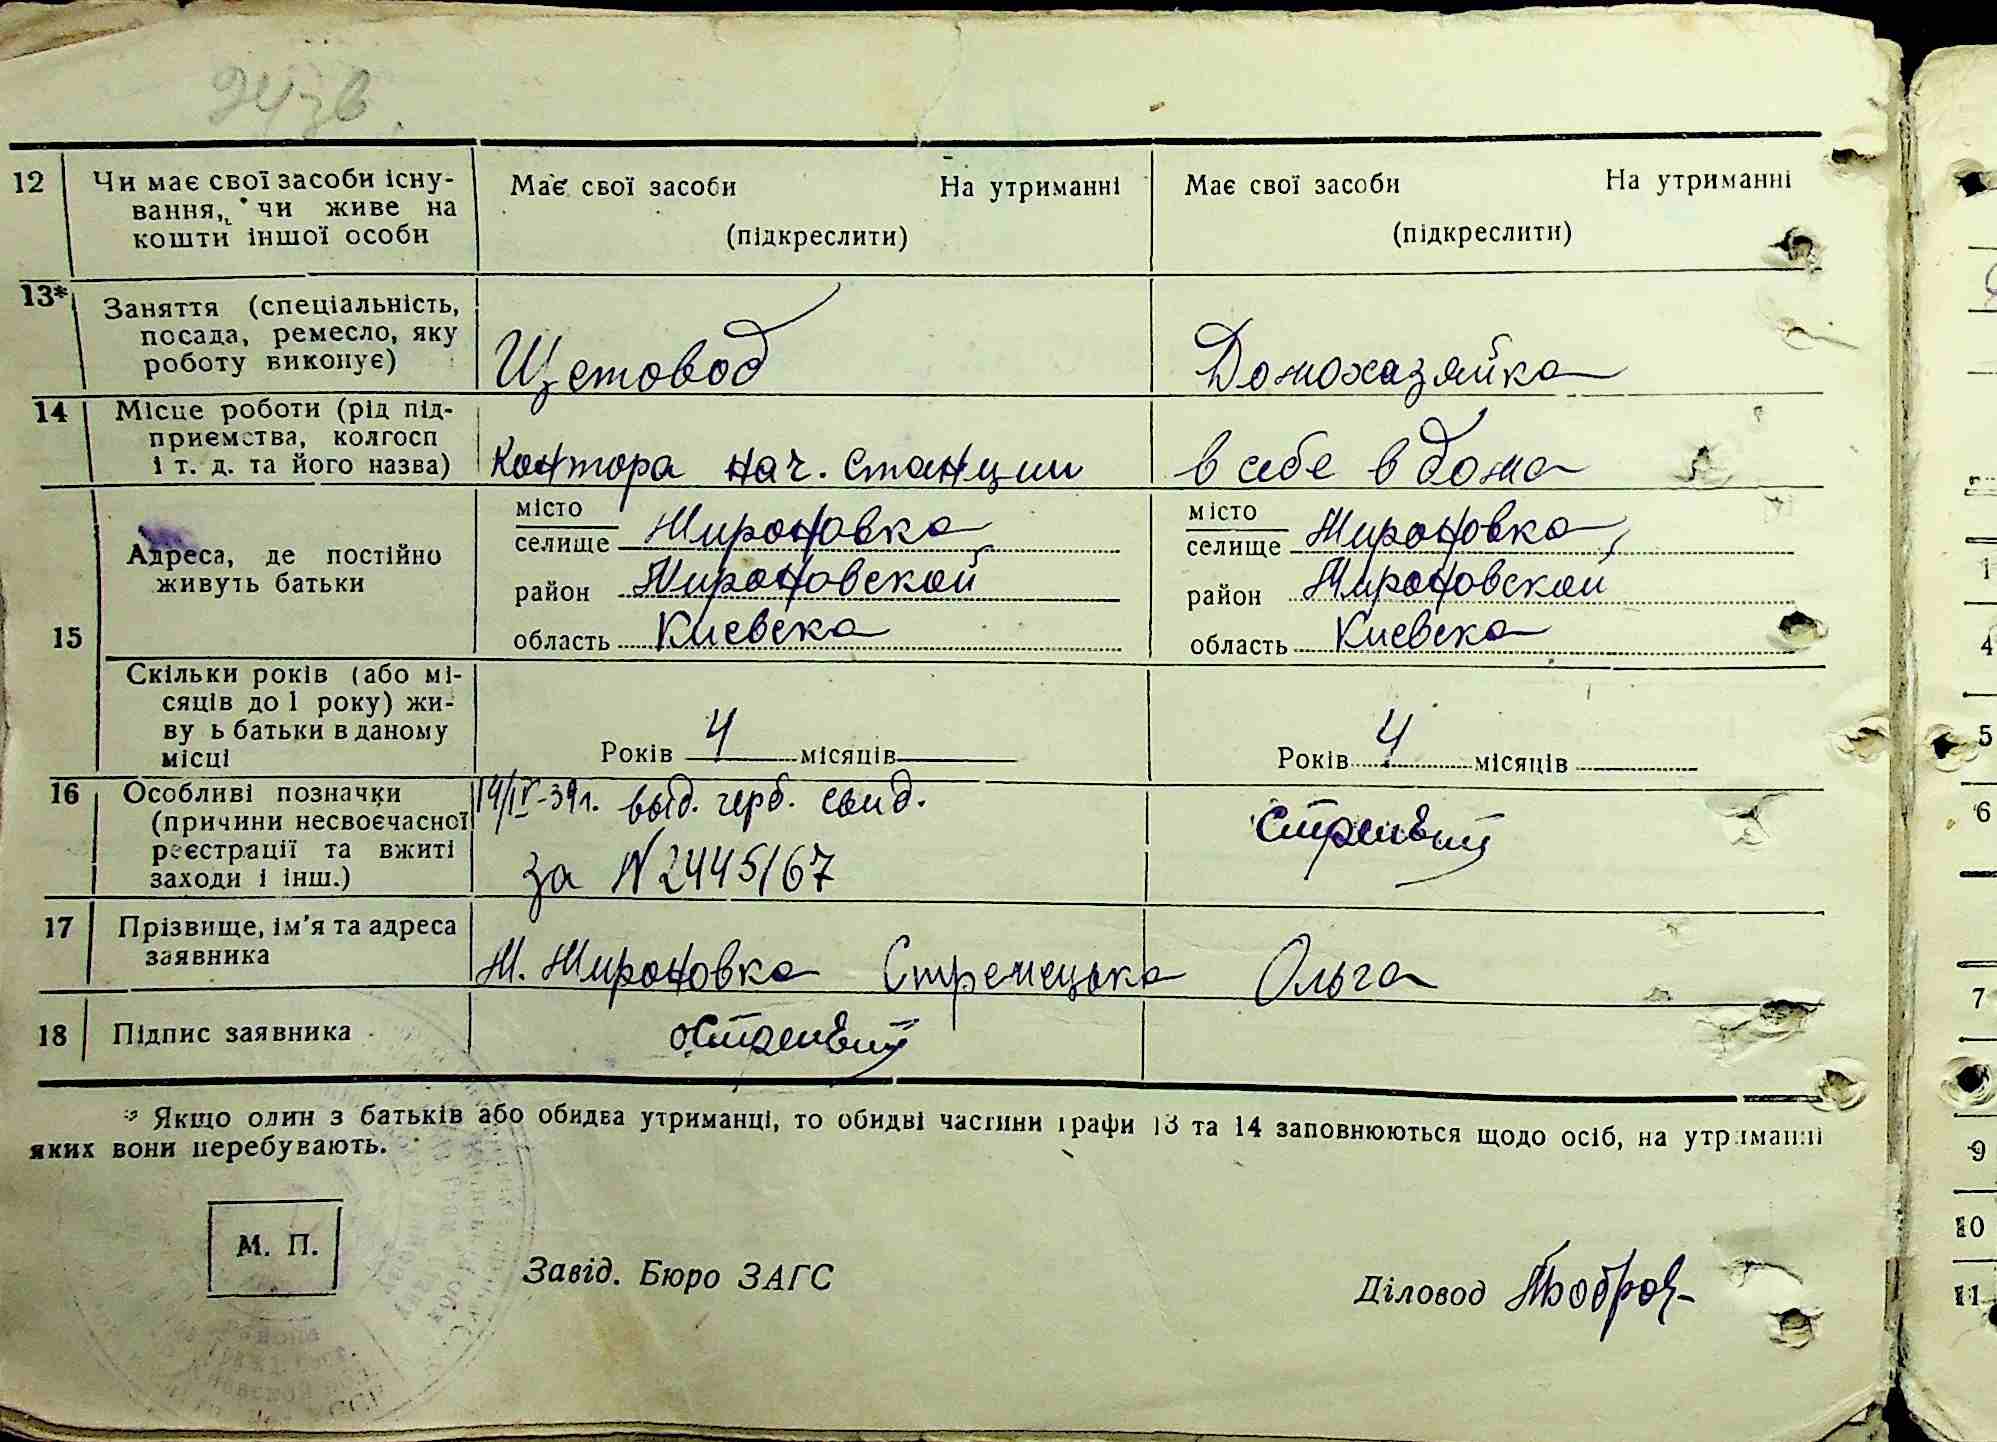 12 Чи має свої засоби існу- Має свої засоби На утриманні Має свої засоби На утриманні
вання, чи живе на
кошти іншої особи (підкреслити) (підкреслити)
13* Заняття (спеціальність,
посада, ремесло, яку
роботу виконує) Щетовод Домохазяйка
14 Місце роботи (рід під-
приємства, колгосп
і т. д. та його назва) Контора нач. станции в себе в дома
15 Адреса, де постійно
живуть батьки
місто
селище Мироновка
район Мироновской
область Киевска
місто
селище Мироновка,
район Мироновской
область Киевска
Скільки років (або мі-
сяців до 1 року) жи-
ву ь батьки в даному
місці
Років 4 місяців Років 4 місяців
16 Особливі позначки 14/IV-39г. выд. герб. свид.
(причини несвоєчасної
реєстрації та вжиті
заходи і інш.) за N 2445/67
17 Прізвище, ім'я та адреса
заявника М. Мироновка Стремецька Ольга
18 Підпис заявника
* Якщо один з батьків або обидва утриманці, то обидві частини графи 13 та 14 заповнюються щодо осіб, на утриманні
яких вони перебувають.
М. П.
Завід. Бюро ЗАГС
Діловод
1
4
5
6
7
9
10
11